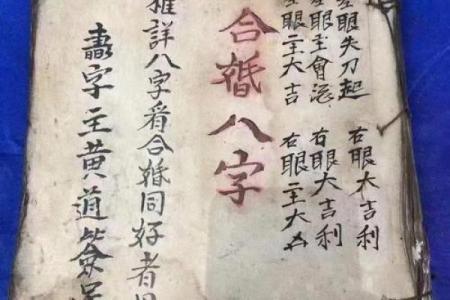 眼失刀起
右眼大吉利
眼主會
右眼大吉利
眼主大吉
右眼主大凶
合婚八字
詳八字看合婚同好者
字主黃道